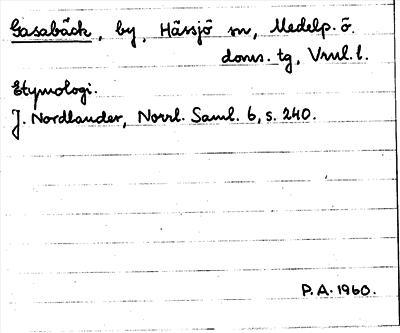 Gasabäck, by, Hässjö sn, Medelp. ö.
doms. tg, Vrnl. l.
Etymologi.
J. Nordlander, Norrl. Saml. 6, s. 240.
P.A. 1960.